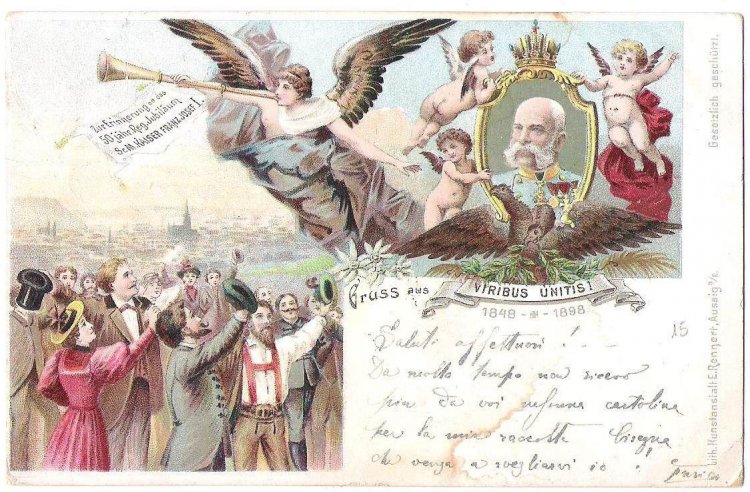 Zur Erinnerung an das
50 jähr. Reg. Jubiläum
Sr. M. KAISER FRANZ JOSEF I.
Gruss aus
VIRIBUS UNITIS!
1848 - 1898
15
Saluti affettuosi! - -
Da molto tempo non ricevo
più da voi nessuna cartolina
per la mia raccolta. Bisogna
che venga a svegliarvi io!
Gesetzlich geschützt.
Lith. Kunstanstalt E. Rennert, Aussig a/E.